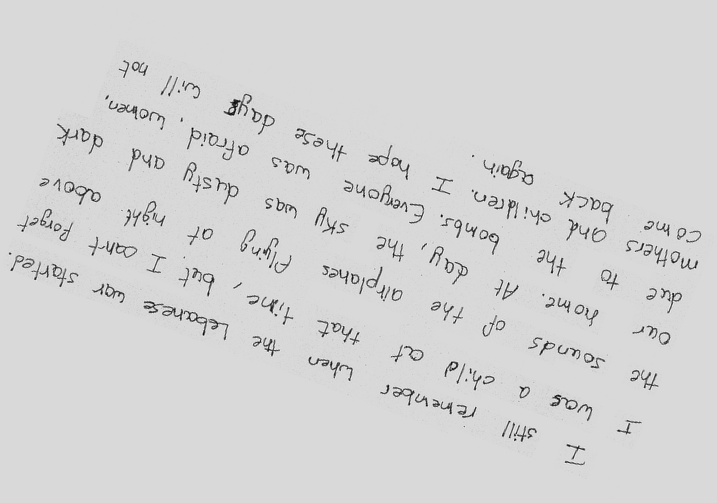 I still remember when the Lebanese war started.
I was a child at that time, but I can't forget
the sounds of the airplanes flying at night above
our home. At day, the sky was dusty and dark
due to the bombs. Everyone was afraid, women,
mothers and children. I hope these days will not
come back again.